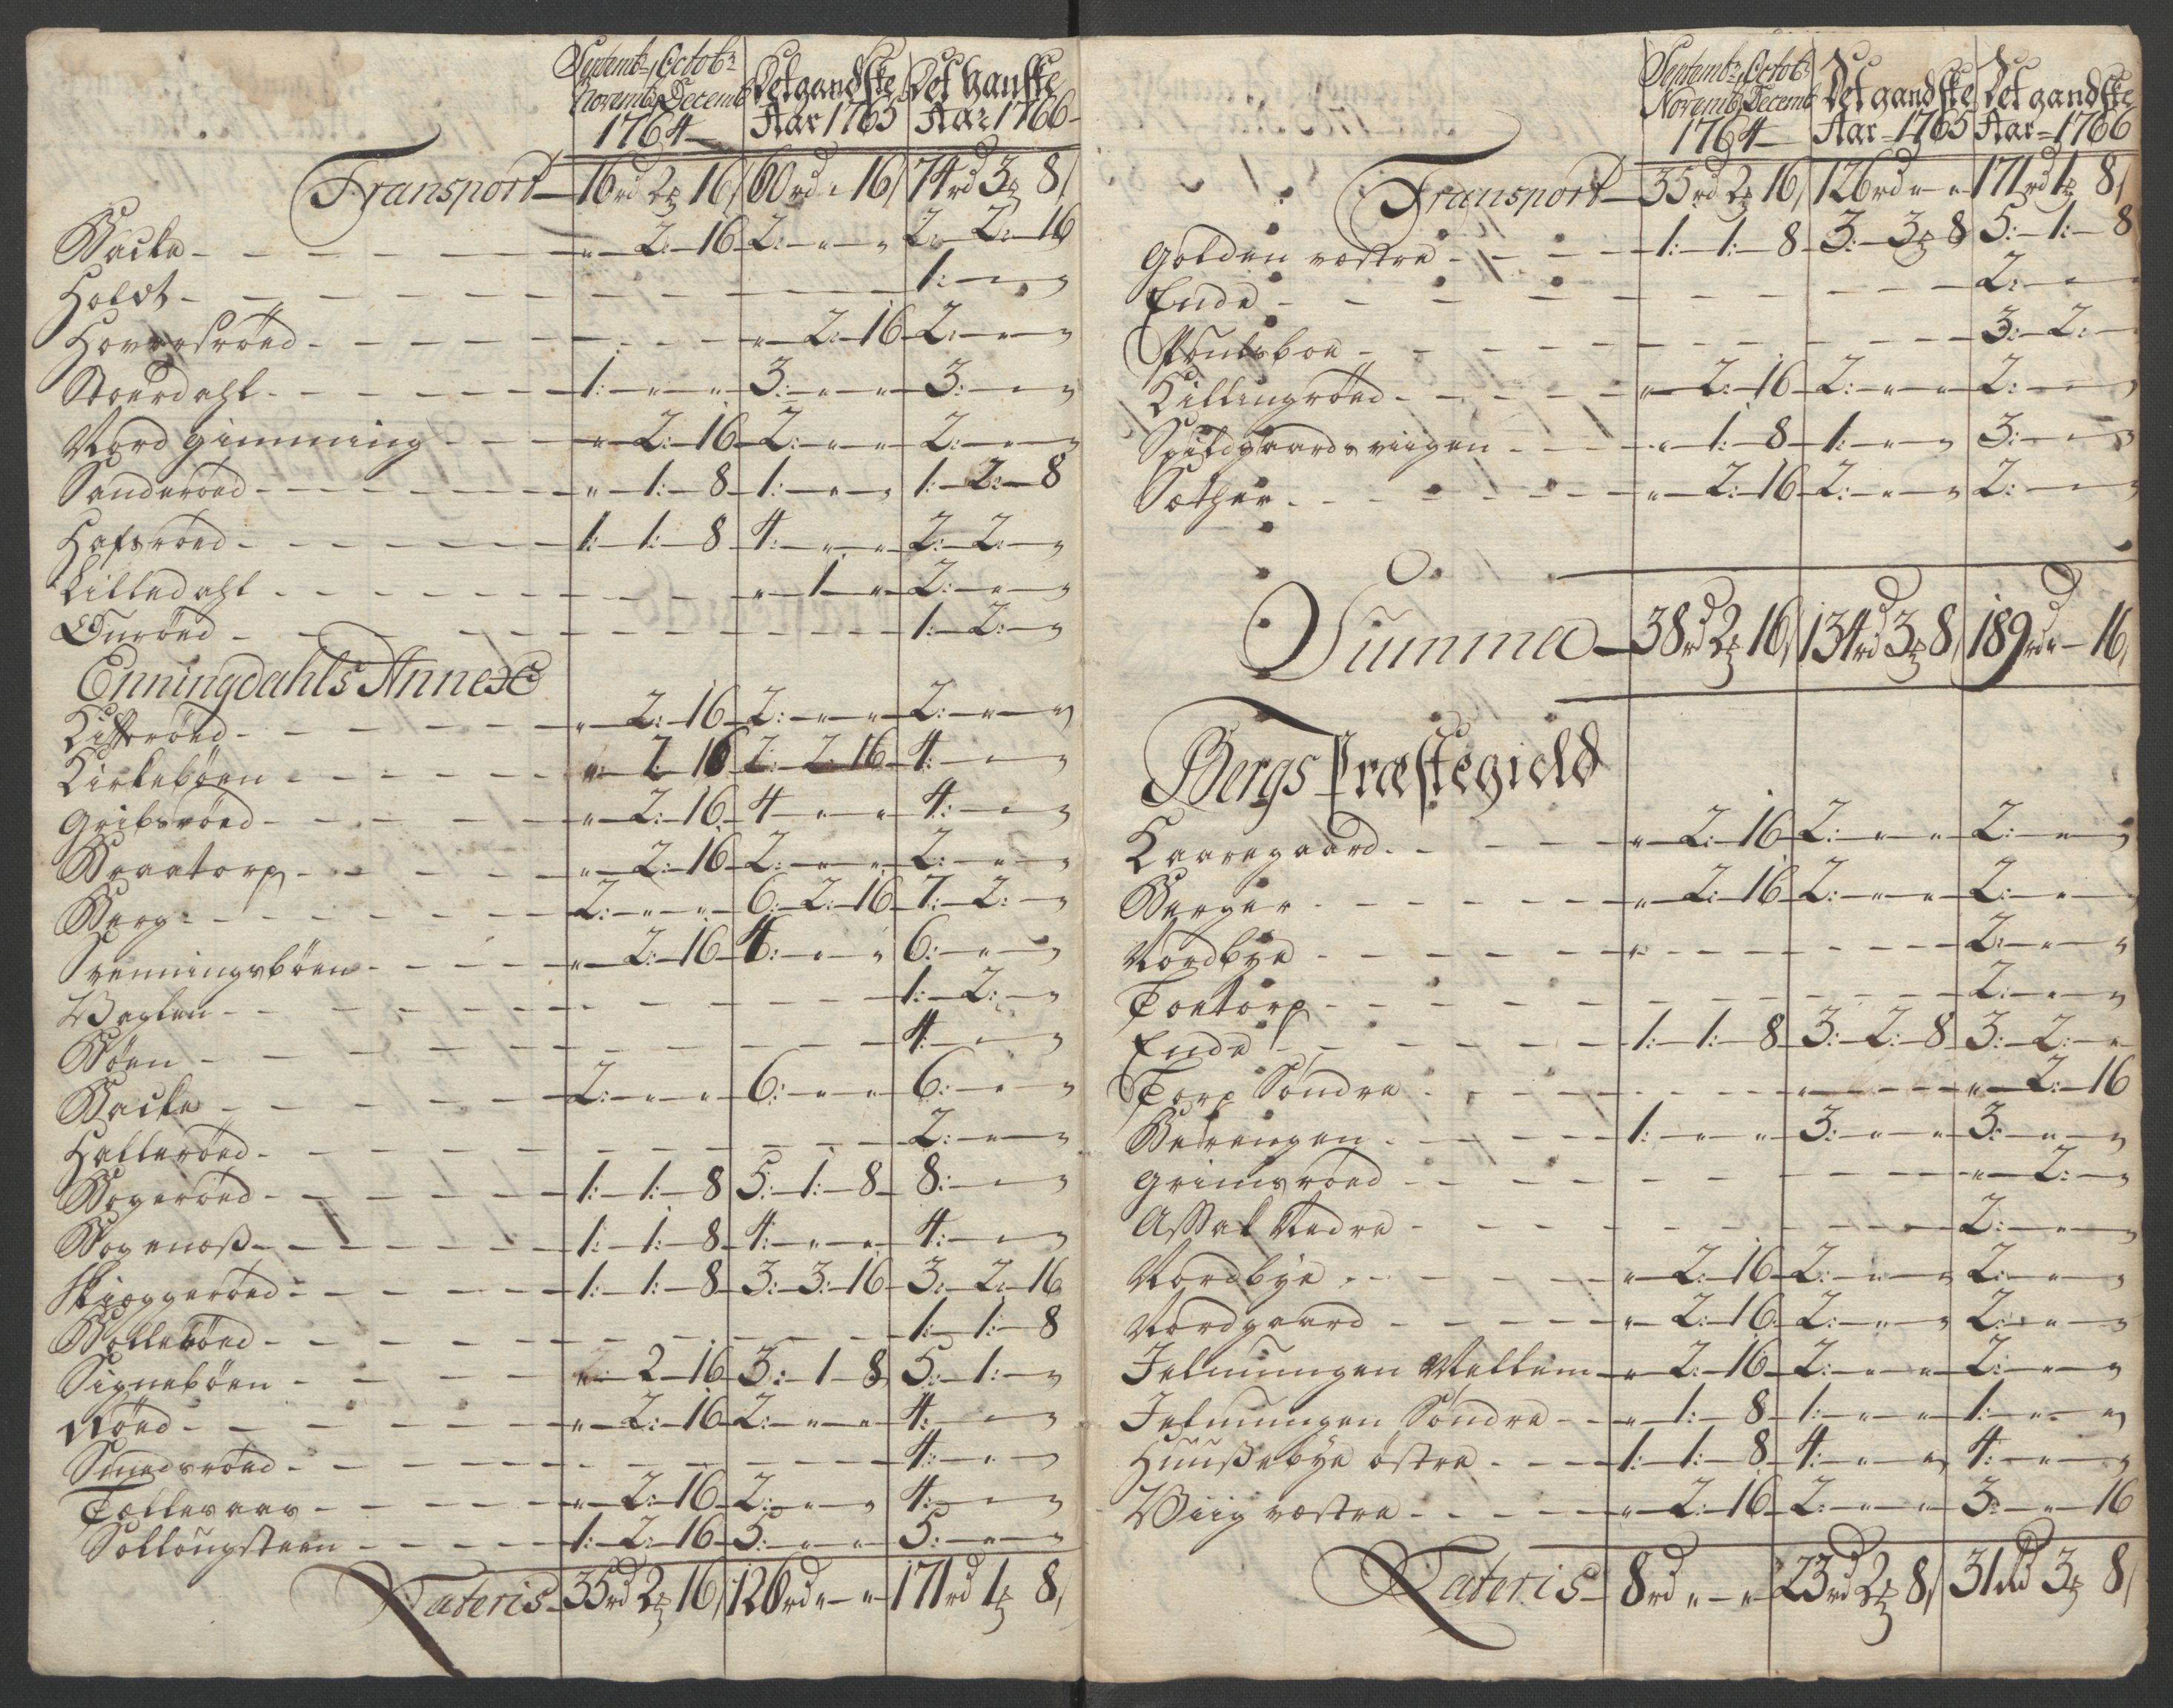 Septembr, Octobr Novemb, Decemb 1764 Det gandske Aar 1765 Det ganske Aar 1766
Transport 16 rd 2 16 60 rd " 16 74 rd 3 8
Backe " 2: 16 2: " " 2: 2: 16
Holdt 1: " "
" 2: 16 2: " "
Stoerdahl 1: " " 3: " " 3: " "
Nord gimming " 2: 16 2: " " 2: " "
Sanderöed " 1: 8 1: " " 1: 2: 8
Hafsröed 1: 1: 8 4: " " 2: 2: "
Lilledahl " 1 " 2: " "
1: 2: "
Enningdahls Annex
" 2: 16 2: " " 2: " "
Kirkebøen " 2 16 2: 2: 16 4: " "
Gribsröed " 2: 16 4 " " 4: " "
Braatorp " 2: 16 2: " " 2: " "
Berg 2: " " 6: 2: 16 7: 2: "
Svenningsbøen " 2: 16 4: " " 6: " "
1: 2: "
Bøen 4: " "
Backe 2: " " 6: " " 6: " "
Halleröed 2: " "
Bogeröed 1: 1: 8 5: 1: 8 8: " "
Bogenæß 1: 1: 8 4: " " 4: " "
Skiøggeröed 1: 1: 8 3: 3: 16 3: 2: 16
1: 1: 8
Signebøen " 2 16 3: 1 8 5: 1: "
Röed " 2: 16 2: " " 4: " "
Smedsröed 4: " "
" 2: 16 2: " " 4: " "
1: 2: 16 5: " " 5: " "
Lateris 35 rd 2 16 126 rd " " 171 rd 1 8
Septembr, Octobr Novembr Decemb 1764 Det gandske Aar 1765 Det gandske Aar 1766
Transport 35 rd 2 16 126 rd " " 171 rd 1 8
Golden væstre 1: 1: 8 3: 3 8 5: 1: 8
Ende 2: " "
3: 2: "
Killingröed " 2: 16 2: " " 2: " "
" 1: 8 1: " " 3: " "
Sæther " 2: 16 2: " " 2: " "
Summa 38 rd 2 16 134 rd 3 8 189 rd " 16
Bergs Præstegield
Kaaregaard " 2: 16 2: " " 2: " "
Berger " 2: 16 2: " " 2: " "
Nordbye 2: " "
Toetorp 2: " "
Ende 1: 1: 8 3: 2: 8 3: 2: "
Torp Søndre " 2: 16
1: " " 3: " " 3: " "
Grimsröed " 2: "
Assak Nedre 2: " "
Nordbye " 2: 16 2: " " 2: " "
Nordgaard " 2: 16 2: " " 2: " "
Jelmungen Mellem " 2: 16 2: " " 2: " "
Jelmungen Søndre " 1: 8 1: " " 1: " "
Huußebye østre 1: 1: 8 4: " " 4: " "
Wiig væstre " 2: 16 2: " " 3: " 16
Lateris 8 rd " " 23 rd 2 8 31 rd 3 8